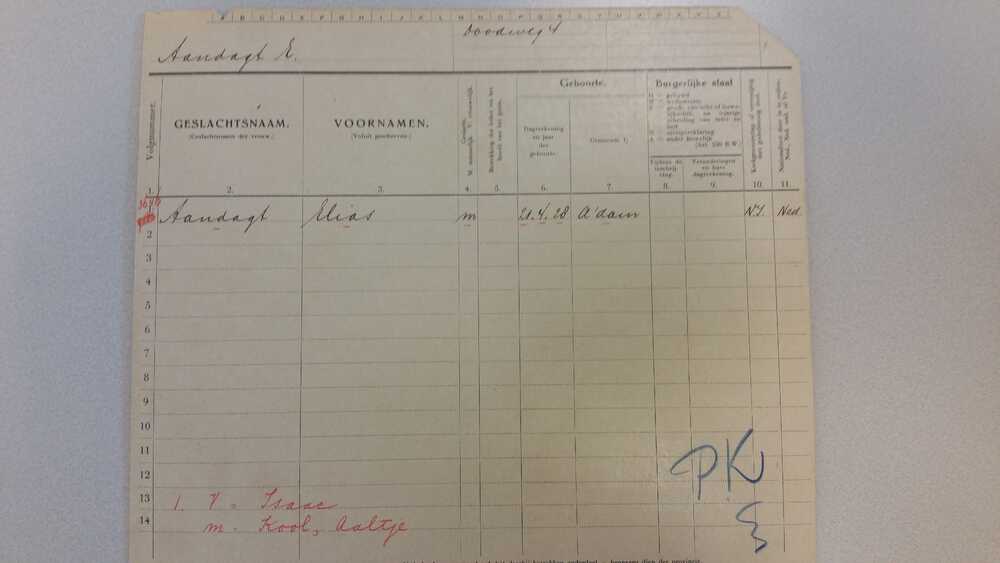 A B C D E F G H I J K L M N O P Q R S T U V W X Y Z
Doodweg 4
Aandagt E.
Volgnummer.
GESLACHTSNAAM.
(Geslachtsnaam der vrouw.)
VOORNAMEN.
(Voluit geschreven.)
Geslacht.
M. mannelijk. V. vrouwelijk.
Betrekking des leden van het
hoofd van het gezin.
Geboorte.
Dagteekening
en jaar
der
geboorte.
Gemeente 1)
Burgerlijke staat
Tijdens de
inschrij-
ving.
Veranderingen
en haar
dagteekening.
Kerkgenootschap of vereeniging
1. 2. 3. 4. 5. 6. 7. 8. 9. 10. 11.
1 Aandagt Elias m 21.4.28 A'dam N.I. Ned.
2
3
4
5
6
7
8
9
10
11
12
P.K
13 1. V = Isaac
14 m. Kool, Aaltje